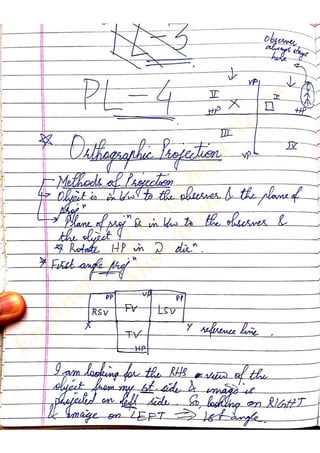 PL-3
Observer
always stays
here
PL-4
VP
II
I
HP
HP
III
IV
VP
Orthographic Projection
Methods of Projection
Object is in b/w to the observer & the plane of
projⁿ
Plane of projⁿ is in b/w to the observer &
the object
Rotate HP in dirⁿ.
First angle projⁿ
PP
VP
PP
RSV
FV
LSV
X
Y
reference line.
TV
HP
I am looking for the RHS view of the
object from my 1st side & image is
projected on left side. So, looking on RIGHT
& image on LEFT ⇒ 1st angle.